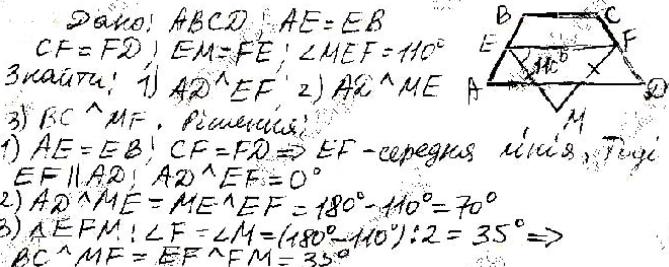 Дано: ABCD; AE = EB
CF = FD; EM = FE; ∠MEF = 110°
Знайти: 1) AD ^ EF 2) AD ^ ME
3) BC ^ MF. Рішення:
1) AE = EB; CF = FD ⇒ EF - середня лінія. Тоді
EF || AD; AD ^ EF = 0°
2) AD ^ ME = ME ^ EF = 180° - 110° = 70°
3) ΔEFM: ∠F = ∠M = (180° - 110°) : 2 = 35° ⇒
BC ^ MF = EF ^ FM = 35°
B C
E F
110°
A D
M